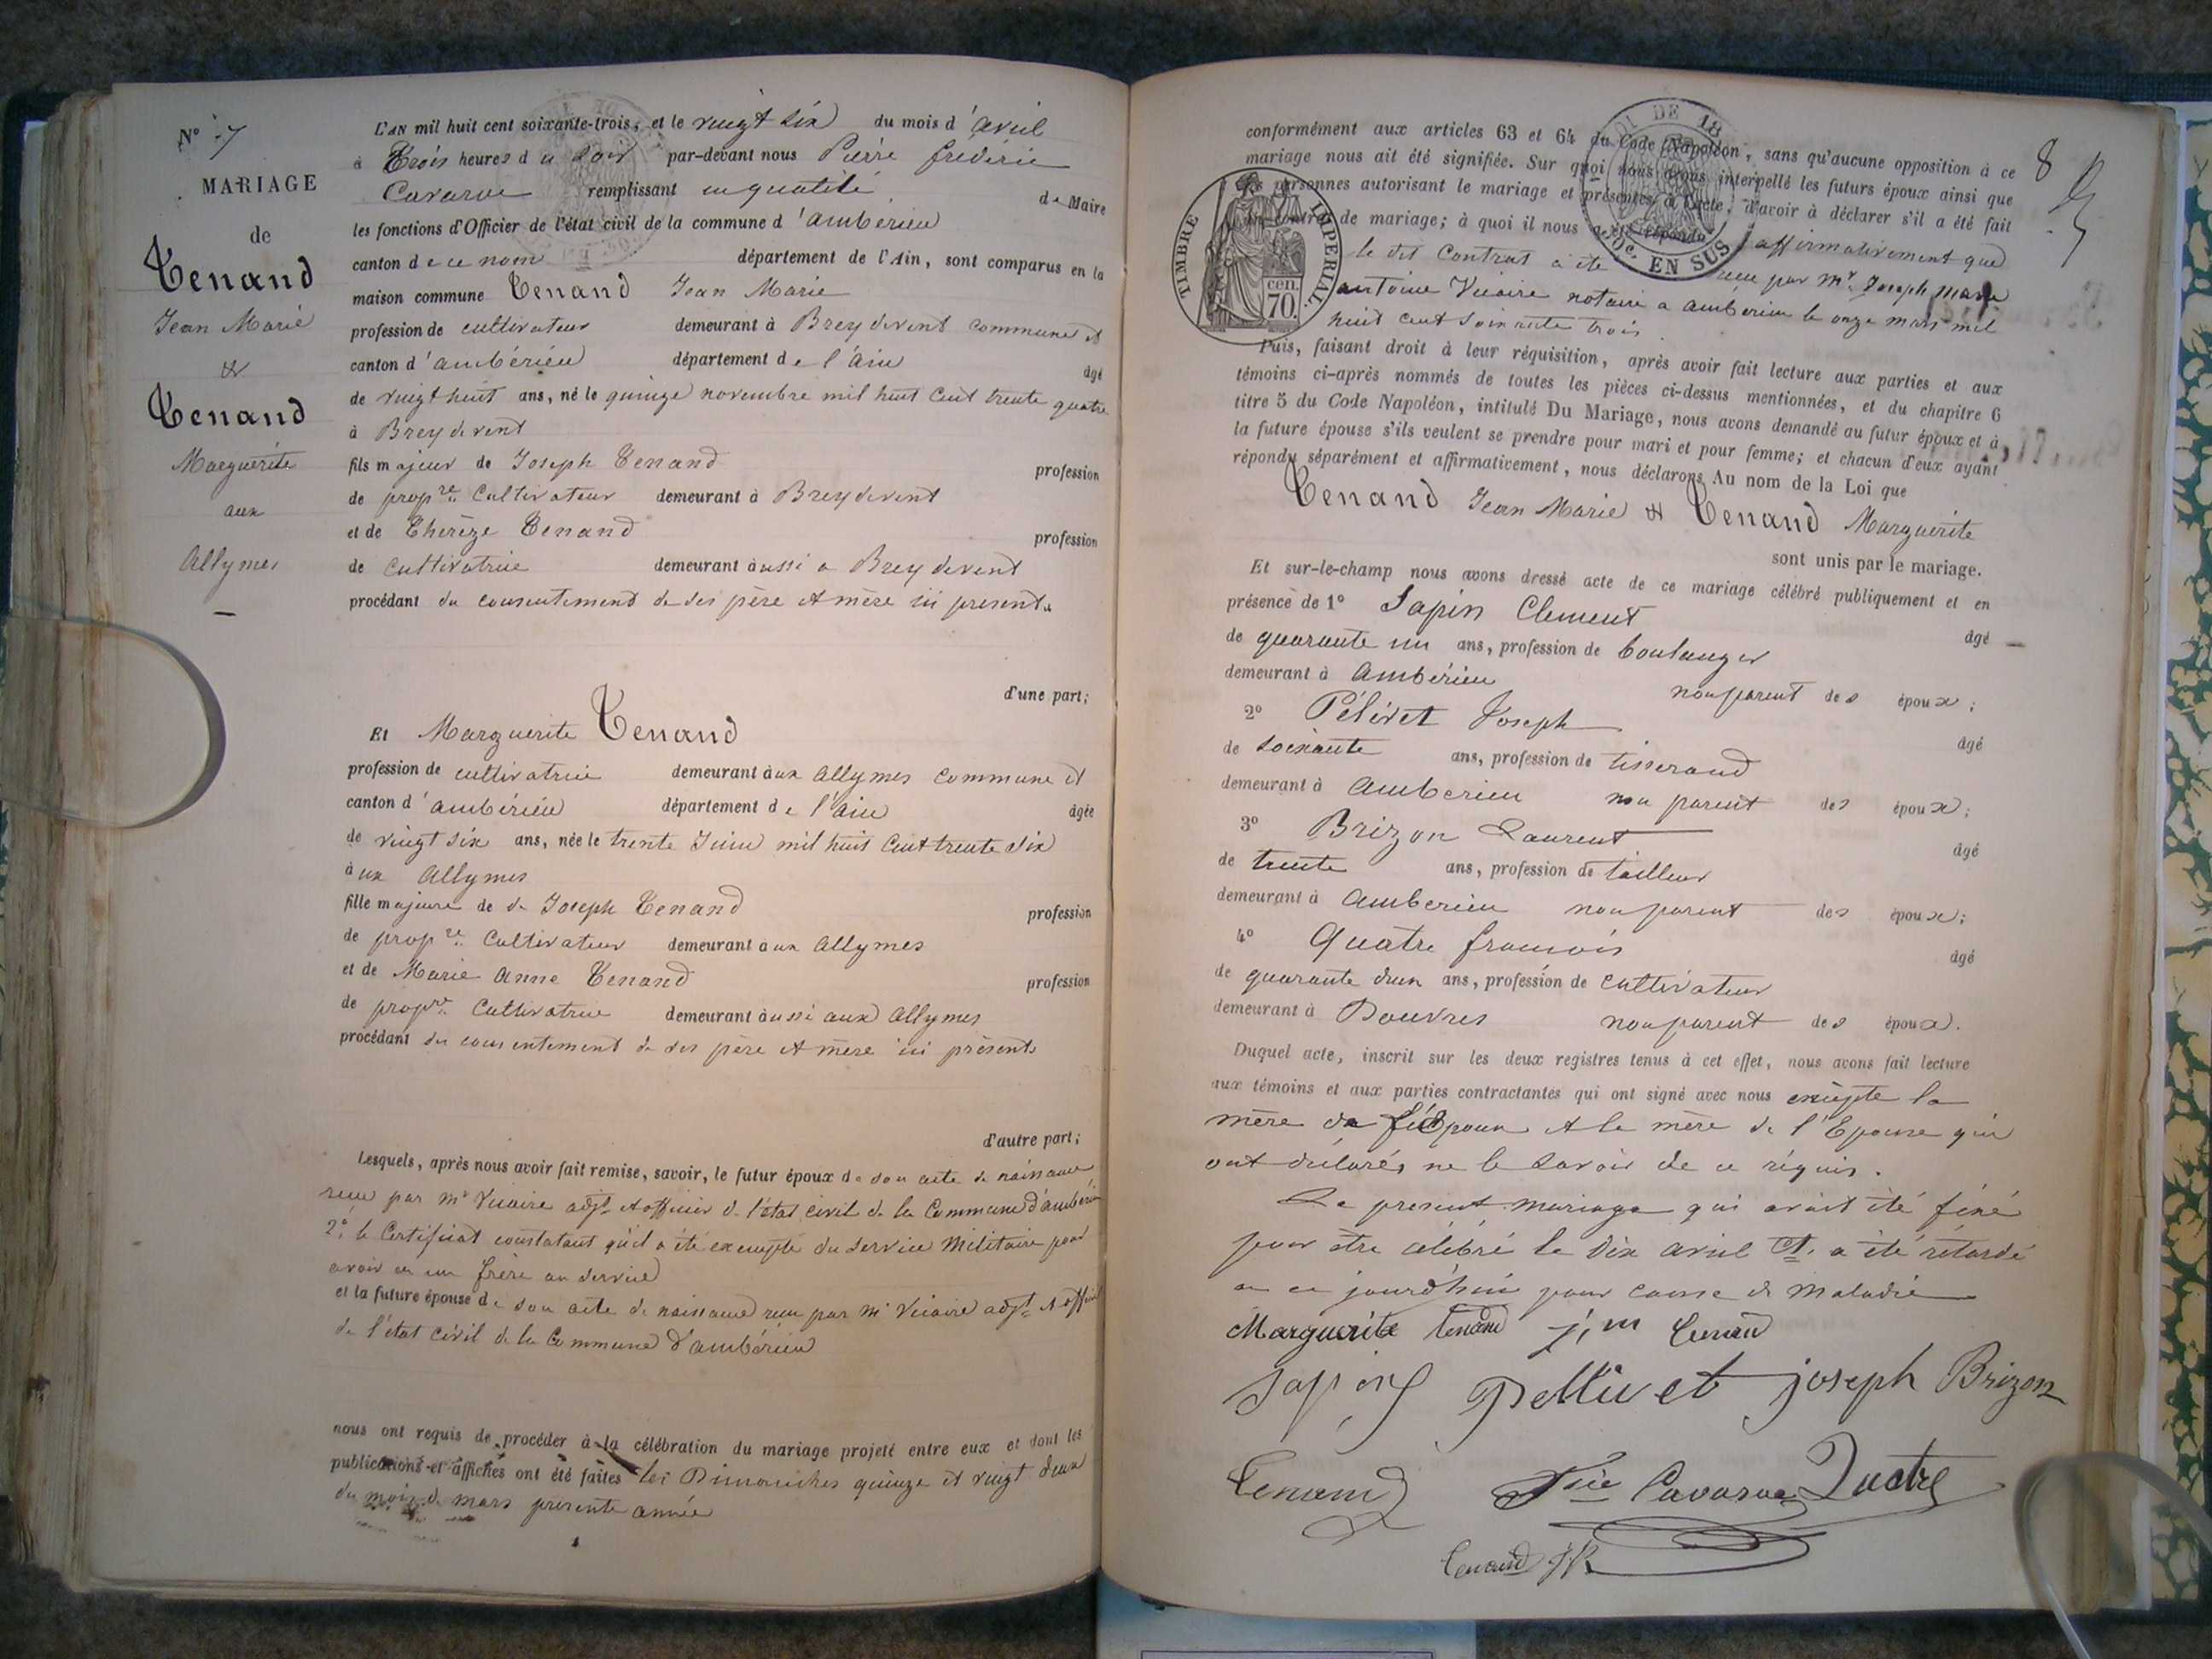 N° 7
MARIAGE
de
Tenand
Jean Marie
&
Tenand
Marguerite
aux
Allymes
L'AN mil huit cent soixante-trois, et le vingt six du mois d'avril
à Trois heures du soir par-devant nous Pierre frédéric
Cavarue remplissant en qualité de Maire
les fonctions d'Officier de l'état civil de la commune d'ambérieu
canton de ce nom département de l'Ain, sont comparus en la
maison commune Tenand Jean Marie
profession de cultivateur demeurant à Breydevent commune et
canton d'ambérieu département de l'ain âgé
de vingt huit ans, né le quinze novembre mil huit cent trente quatre
à Breydevent
fils majeur de Joseph Tenand profession
de propre Cultivateur demeurant à Breydevent
et de Thérèze Tenand profession
de cultivatrice demeurant aussi a Breydevent
procédant du consentement de ses père et mère ici presents
d'une part;
Et Marguerite Tenand
profession de cultivatrice demeurant aux allymes commune et
canton d'ambérieu département de l'ain âgée
de vingt six ans, née le trente Juin mil huit Cent trente six
aux allymes
fille majeure de de Joseph Tenand profession
de propre Cultivateur demeurant aux allymes
et de Marie anne Tenand profession
de propre Cultivatrice demeurant aussi aux allymes
procédant du consentement de ses père et mère ici présents
d'autre part;
Lesquels, après nous avoir fait remise, savoir, le futur époux de son acte de naissance
recu par mr Vicaire adjt et officier de l'état civil de la Commune d'ambérieu
2° le Certificat constatant qu'il a été exempté du service Militaire pour
avoir eu un frère au service
et la future épouse de son acte de naissance recu par mr Vicaire adjt et officier
de l'état civil de la Commune d'ambérieu
nous ont requis de procéder à la célébration du mariage projeté entre eux et dont les
publications et affiches ont été faites les Dimanches quinze et vingt deux
du mois de mars presente année
8
conformément aux articles 63 et 64 du Code Napoléon, sans qu'aucune opposition à ce
mariage nous ait été signifiée. Sur quoi nous avons interpellé les futurs époux ainsi que
les personnes autorisant le mariage et présentes à l'acte, d'avoir à déclarer s'il a été fait
un contrat de mariage; à quoi il nous a été répondu affirmativement que
le dit Contrat a été recu par mr Joseph marie
antoine Vicaire notaire a amberieu le onze mars mil
huit cent soixante trois
TIMBRE IMPERIAL
70 cen.
LOI DE 18
10c. EN SUS
Puis, faisant droit à leur réquisition, après avoir fait lecture aux parties et aux
témoins ci-après nommés de toutes les pièces ci-dessus mentionnées, et du chapitre 6
titre 5 du Code Napoléon, intitulé Du Mariage, nous avons demandé au futur époux et à
la future épouse s'ils veulent se prendre pour mari et pour femme; et chacun d'eux ayant
répondu séparément et affirmativement, nous déclarons Au nom de la Loi que
Tenand Jean Marie & Tenand Marguerite
sont unis par le mariage.
Et sur-le-champ nous avons dressé acte de ce mariage célébré publiquement et en
présence de 1° Sapin Clement âgé
de quarante un ans, profession de boulanger
demeurant à ambérieu non parent des époux;
2° Pélivet Joseph âgé
de soixante ans, profession de tisserand
demeurant à amberieu non parent des époux;
3° Brizon Laurent âgé
de trente ans, profession de tailleur
demeurant à amberieu non parent des époux;
4° Quatre francois âgé
de quarante deux ans, profession de cultivateur
demeurant à Douvres non parent des époux.
Duquel acte, inscrit sur les deux registres tenus à cet effet, nous avons fait lecture
aux témoins et aux parties contractantes qui ont signé avec nous exepte la
mère de l'époux et la mère de l'Epouse qui
ont déclarés ne le savoir de ce réquis.
Le present mariage qui avait été fixé
pour être célébré le dix avril ct. a été retardé
a ce jourd'hui pour cause de Maladie
Marguerite tenand j, m tenand
Sapin Pellivet joseph Brizon
Tenand fric Cavarue Quatre
Tenand